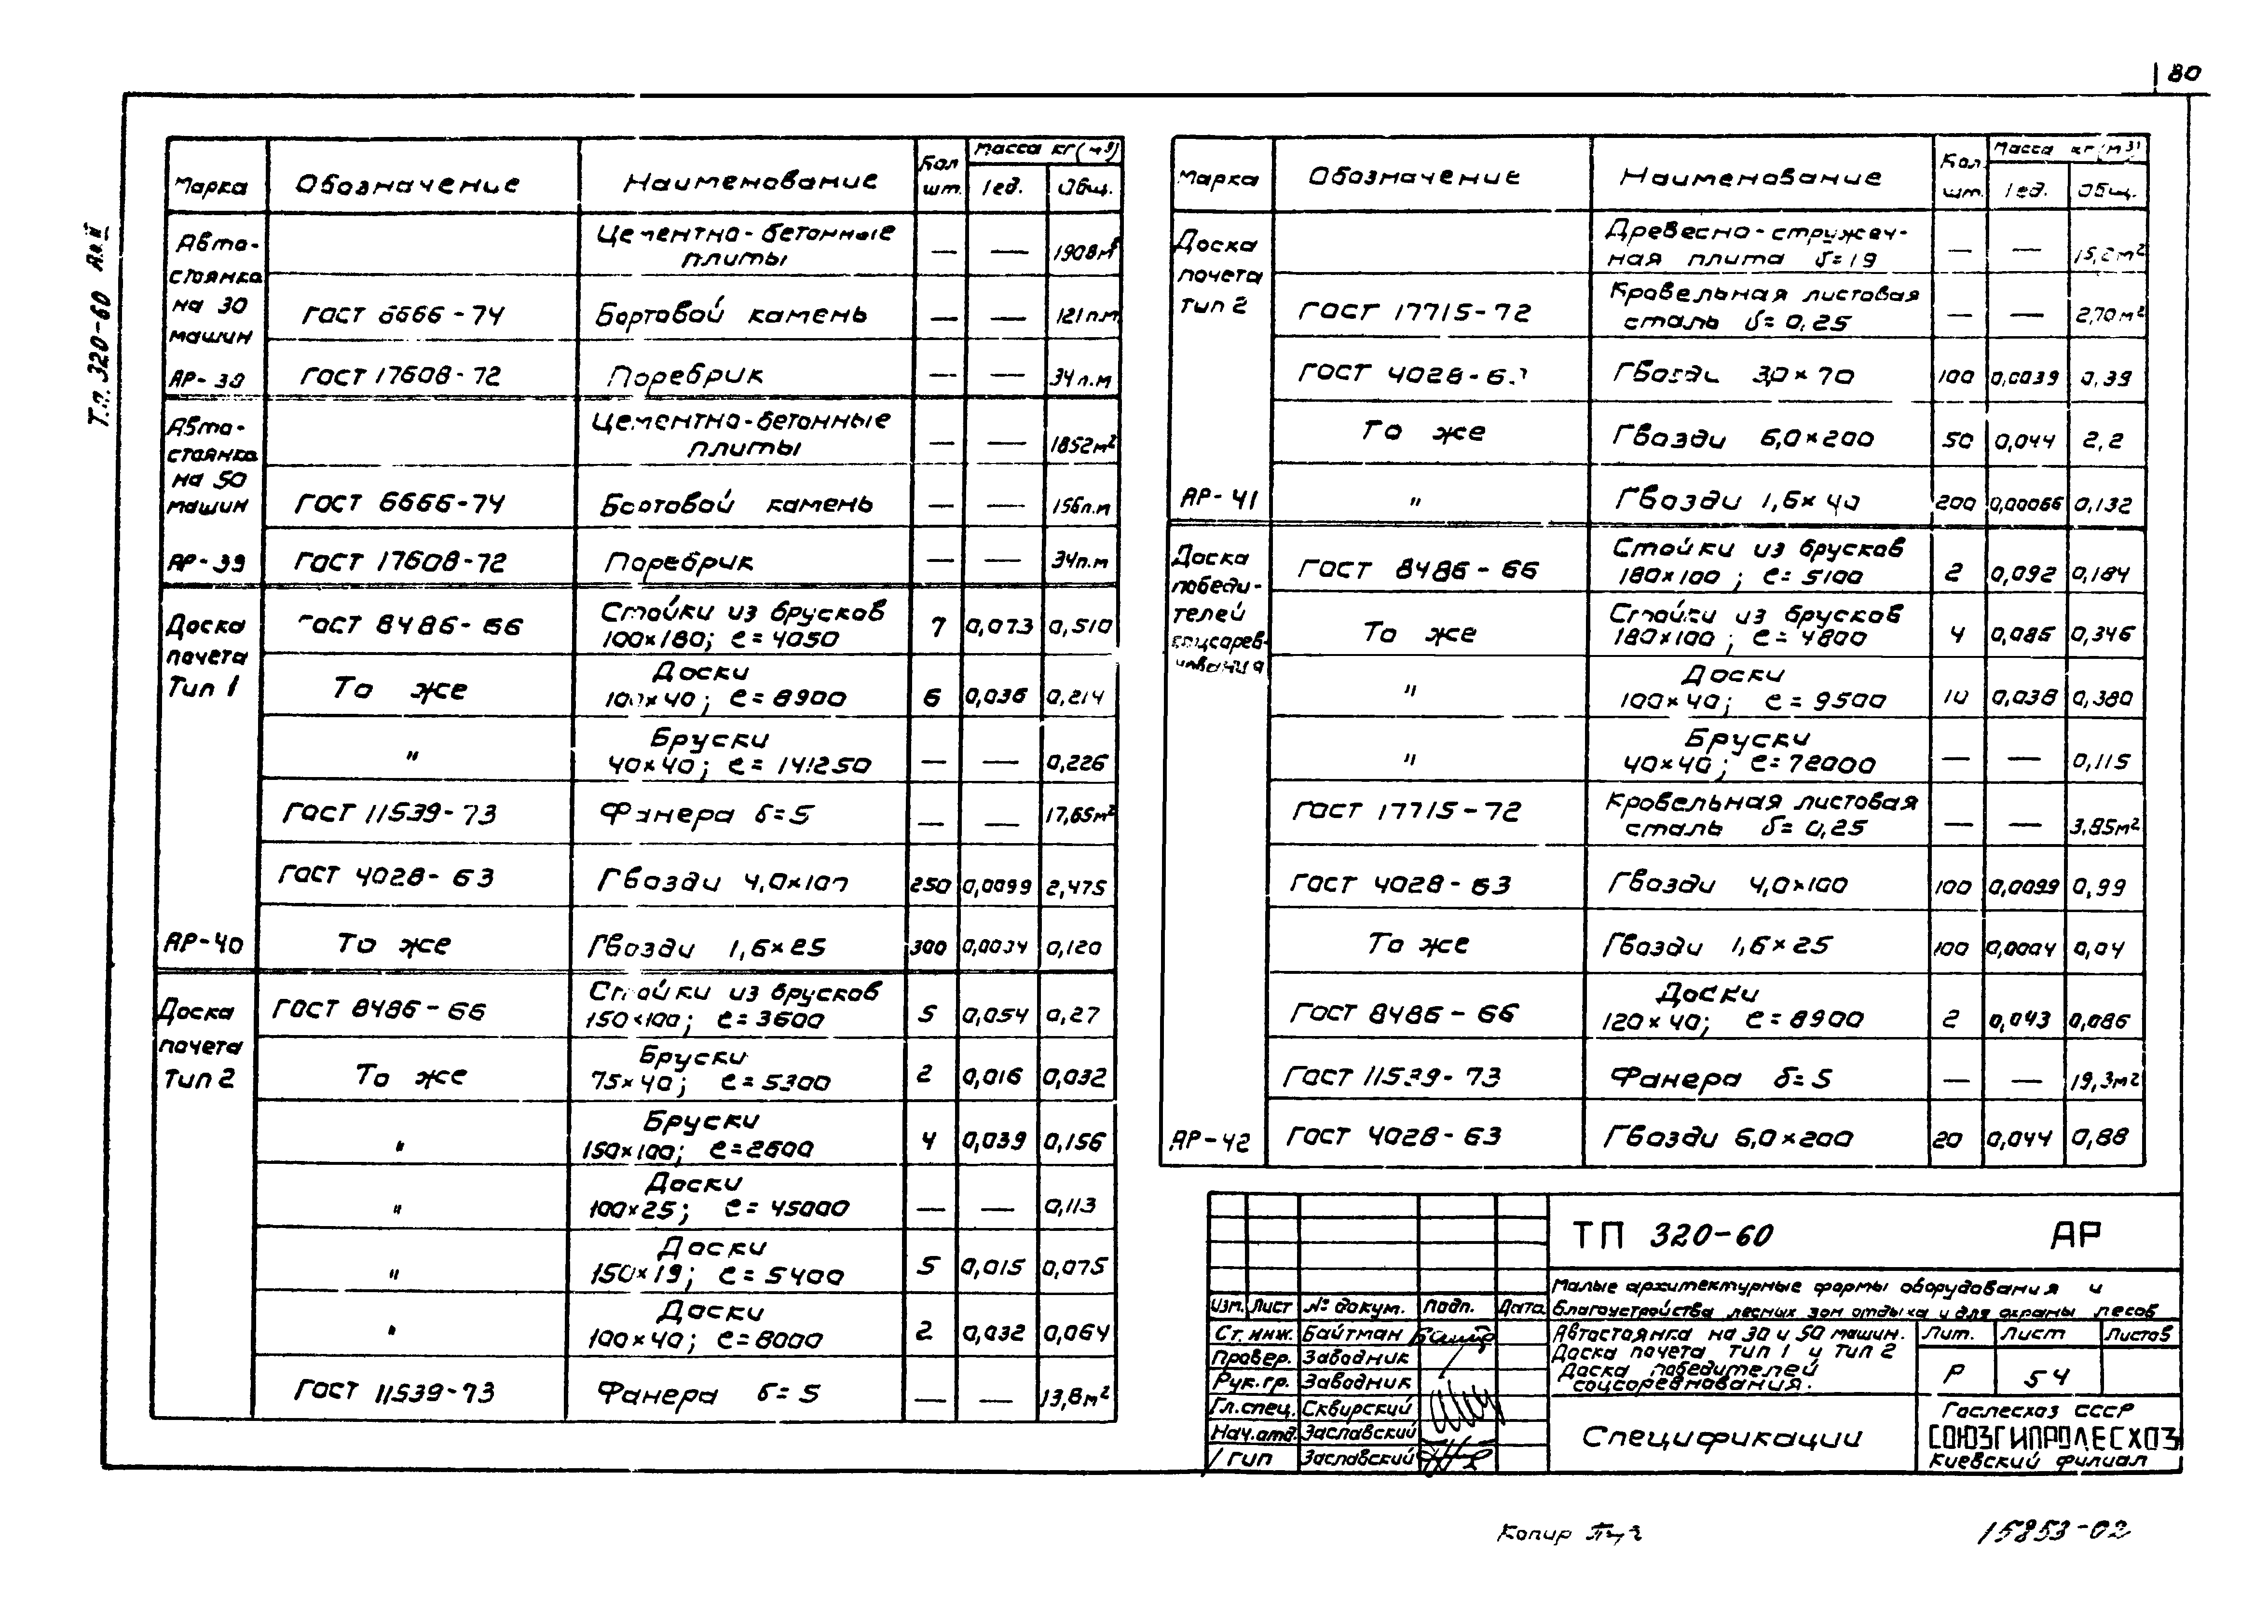 80
Т.п. 320-60 Ал. II
Марка Обозначение Наименование Кол шт. Масса кг (м³) 1ед. Общ.
Авто-
стоянка
на 30
машин
АР-39
Цементно-бетонные
плиты — — 1908м²
ГОСТ 6666-74 Бортовой камень — — 121п.м
ГОСТ 17608-72 Поребрик — — 34п.м
Авто-
стоянка
на 50
машин
АР-39
Цементно-бетонные
плиты — — 1852м²
ГОСТ 6666-74 Бортовой камень — — 156п.м
ГОСТ 17608-72 Поребрик — — 34п.м
Доска
почета
Тип 1
АР-40
ГОСТ 8486-66 Стойки из брусков
100×180; ℓ=4050 7 0,073 0,510
То же Доски
100×40; ℓ=8900 6 0,036 0,214
" Бруски
40×40; ℓ=141250 — — 0,226
ГОСТ 11539-73 Фанера δ=5 — — 17,65м²
ГОСТ 4028-63 Гвозди 4,0×100 250 0,0099 2,475
То же Гвозди 1,6×25 300 0,120
Доска
почета
Тип 2
ГОСТ 8486-66 Стойки из брусков
150×100; ℓ=3600 5 0,054 0,27
То же Бруски
75×40; ℓ=5300 2 0,016 0,032
" Бруски
150×100; ℓ=2600 4 0,039 0,156
" Доски
100×25; ℓ=45000 — — 0,113
" Доски
150×19; ℓ=5400 5 0,015 0,075
" Доски
100×40; ℓ=8000 2 0,032 0,064
ГОСТ 11539-73 Фанера δ=5 — — 13,8м²
Марка Обозначение Наименование Кол. шт. Масса кг (м³) 1ед. Общ.
Доска
почета
тип 2
АР-41
Древесно-стружеч-
ная плита δ=19 — — 15,2м²
ГОСТ 17715-72 Кровельная листовая
сталь δ=0,25 — — 2,70м²
ГОСТ 4028-63 Гвозди 3,0×70 100 0,0039 0,39
То же Гвозди 6,0×200 50 0,044 2,2
" Гвозди 1,6×40 200 0,00066 0,132
Доска
победи-
телей
соцсорев-
нования
АР-42
ГОСТ 8486-66 Стойки из брусков
180×100; ℓ=5100 2 0,092 0,184
То же Стойки из брусков
180×100; ℓ=4800 4 0,086 0,346
" Доски
100×40; ℓ=9500 10 0,038 0,380
" Бруски
40×40; ℓ=72000 — — 0,115
ГОСТ 17715-72 Кровельная листовая
сталь δ=0,25 — — 3,85м²
ГОСТ 4028-63 Гвозди 4,0×100 100 0,0099 0,99
То же Гвозди 1,6×25 100 0,0004 0,04
ГОСТ 8486-66 Доски
120×40; ℓ=8900 2 0,043 0,086
ГОСТ 11539-73 Фанера δ=5 — — 19,3м²
ГОСТ 4028-63 Гвозди 6,0×200 20 0,044 0,88
ТП 320-60 АР
Малые архитектурные формы оборудования и
благоустройства лесных зон отдыха и для охраны лесов
Изм. Лист № докум. Подп. Дата
Ст. инж. Байтман
Провер. Заводник
Рук. гр. Заводник
Гл. спец. Сквирский
Нач. отд. Заславский
ГИП Заславский
Автостоянка на 30 и 50 машин.
Доска почета тип 1 и тип 2
Доска победителей
соцсоревнования.
Лит. Лист Листов
Р 54
Спецификации
Гослесхоз СССР
СОЮЗГИПРОЛЕСХОЗ
Киевский филиал
Копир
15853-02